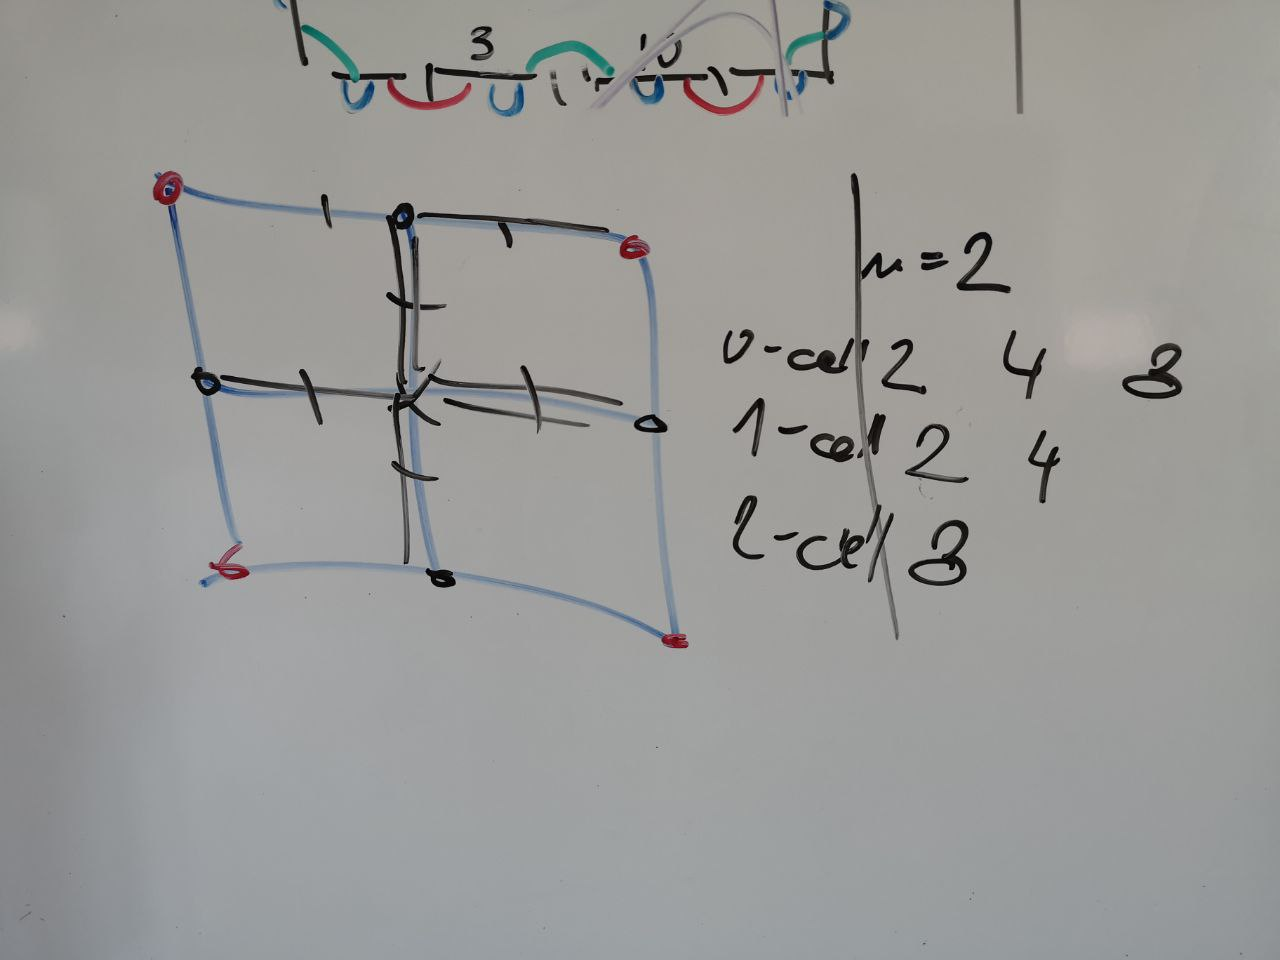 3 10
n=2
0-cell 2 4 8
1-cell 2 4
2-cel 8